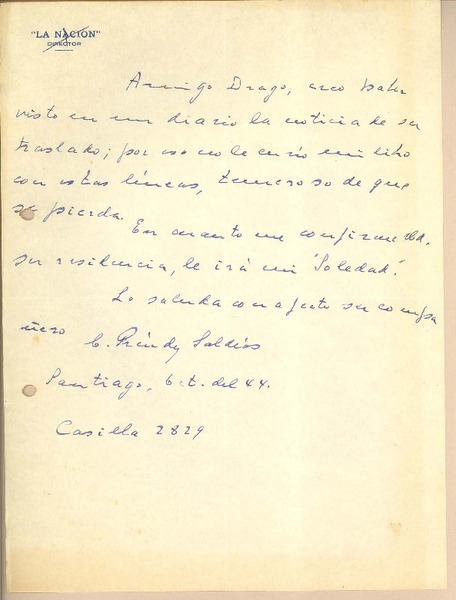 "LA NACION"
DIRECTOR
Amigo Drago, creo haber
visto en un diario la noticia de su
traslado; por eso no le envío mi libro
con estas líneas, temeroso de que
se pierda.
En cuanto me confirme Ud.
su residencia, le irá mi "Soledad".
Lo saluda con afecto su compa
ñero
C. Préndez Saldías
Santiago, Oct. del 44.
Casilla 2829